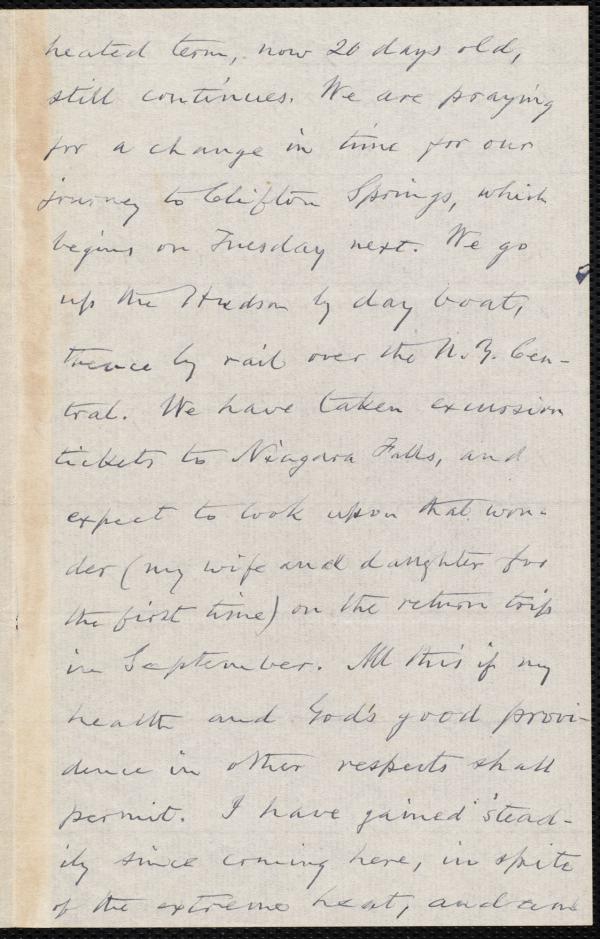 heated term, now 20 days old,
still continues. We are praying
for a change in time for our
journey to Clifton Springs, which
begins on Tuesday next. We go
up the Hudson by day boat,
thence by rail over the N.Y. Cen-
tral. We have taken excursion
tickets to Niagara Falls, and
expect to look upon that won-
der (my wife and daughter for
the first time) on the return trip
in September. All this if my
health and God's good provi-
dence in other respects shall
permit. I have gained stead-
ily since coming here, in spite
of the extreme heat, and am